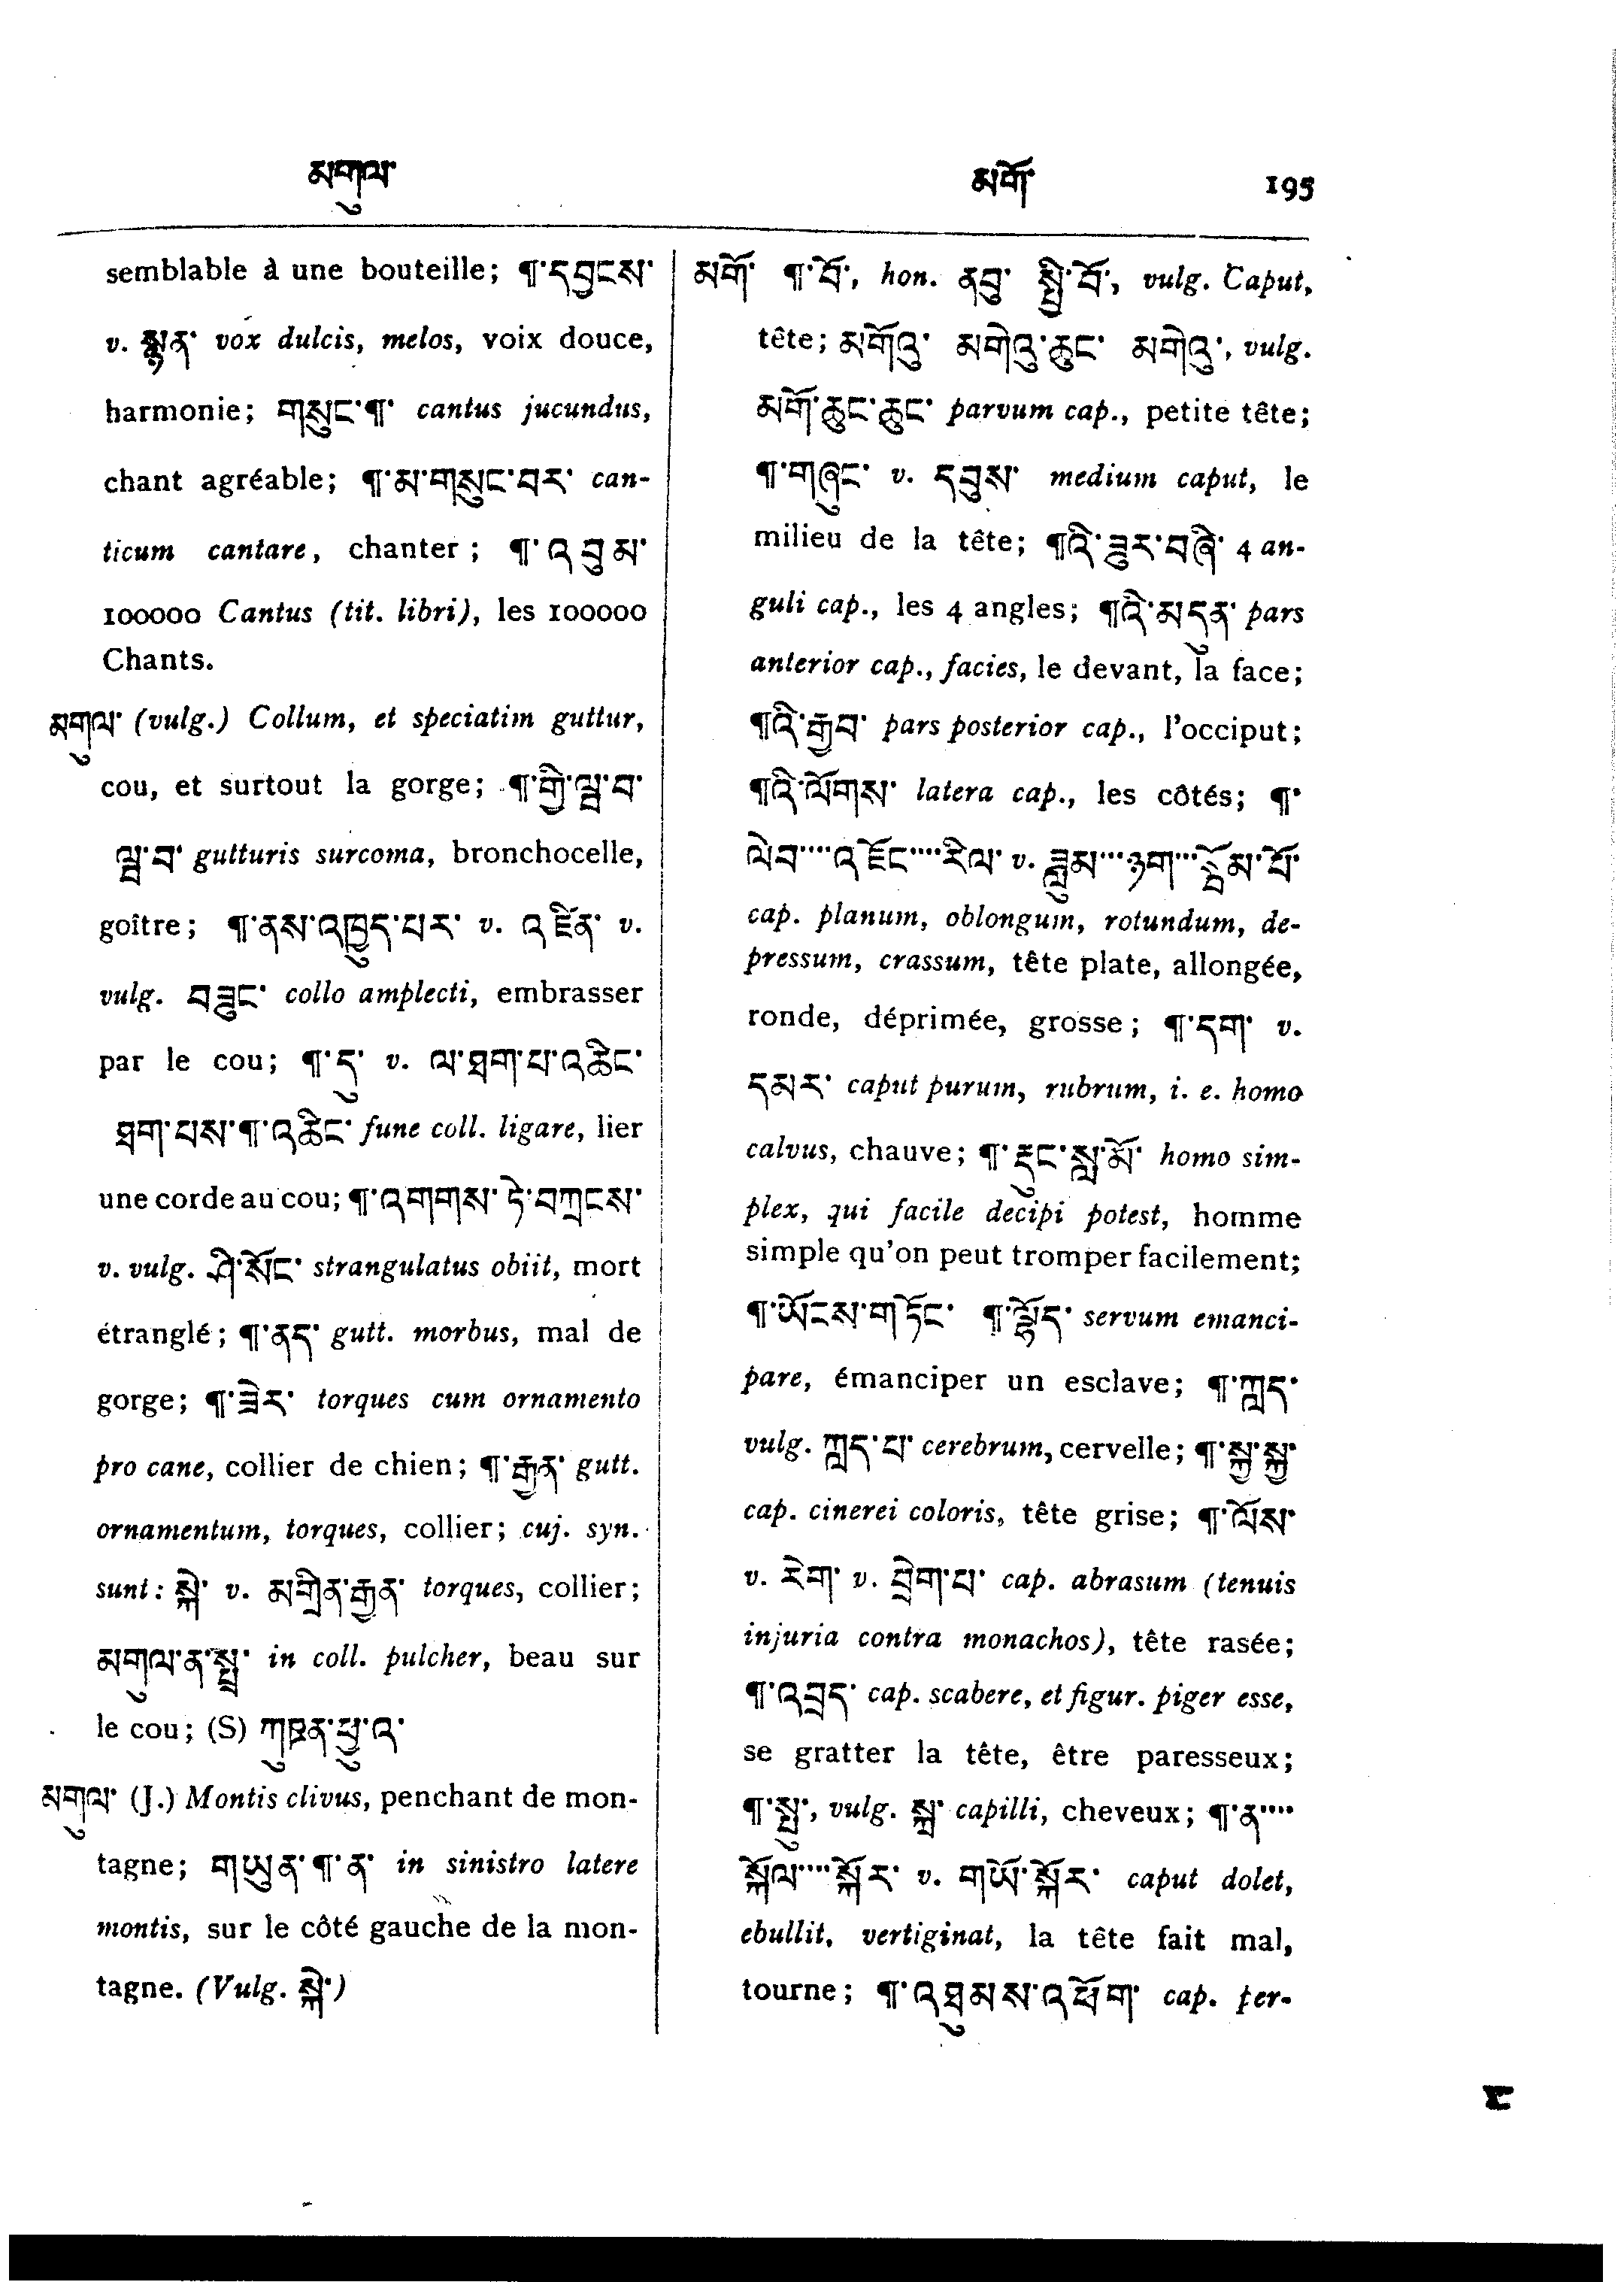 མགུལ་
མགོ་ 195
semblable à une bouteille; ¶་དབྱངས་
v. སྙན་ vox dulcis, melos, voix douce,
harmonie; གསུང་¶་ cantus jucundus,
chant agréable; ¶་མ་གསུང་བར་ can-
ticum cantare, chanter; ¶་འབུམ་
100000 Cantus (tit. libri), les 100000
Chants.
མགུལ་ (vulg.) Collum, et speciatim guttur,
cou, et surtout la gorge; ¶་གྱི་ལྦ་བ་
ལྦ་བ་ gutturis surcoma, bronchocelle,
goître; ¶་ནས་འཁྱུད་པར་ v. འཛིན་ v.
vulg. བཟུང་ collo amplecti, embrasser
par le cou; ¶་དུ་ v. ལ་ཐག་པ་འཆིང་
ཐག་པས་¶་འཆིང་ fune coll. ligare, lier
une corde au cou; ¶་འགགས་ཏེ་བཀྲངས་
v. vulg. ཤི་སོང་ strangulatus obiit, mort
étranglé; ¶་ནད་ gutt. morbus, mal de
gorge; ¶་ཟེར་ torques cum ornamento
pro cane, collier de chien; ¶་རྒྱན་ gutt.
ornamentum, torques, collier; cuj. syn.
sunt: སྐེ་ v. མགྲིན་རྒྱན་ torques, collier;
མགུལ་ན་སྤྲ་ in coll. pulcher, beau sur
le cou; (S)
མགུལ་ (J.) Montis clivus, penchant de mon-
tagne; གཡུན་¶་ན་ in sinistro latere
montis, sur le côté gauche de la mon-
tagne. (Vulg. སྐེ་)
མགོ་ ¶་བོ་, hon. ནབུ་ སྤྱི་བོ་, vulg. Caput,
tête; མགོའུ་ མགེའུ་ཆུང་ མགེའུ་, vulg.
མགོ་ཆུང་ཆུང་ parvum cap., petite tête;
¶་གཞུང་ v. དབུས་ medium caput, le
milieu de la tête; ¶འི་ཟུར་བཞི་ 4 an-
guli cap., les 4 angles; ¶འི་མདུན་ pars
anterior cap., facies, le devant, la face;
¶འི་རྒྱབ་ pars posterior cap., l'occiput;
¶འི་ལོགས་ latera cap., les côtés; ¶་
ལེབ་...འཇོང་...རིལ་ v. ཟླུམ་...ཉག་...རྡོམ་པོ་
cap. planum, oblongum, rotundum, de-
pressum, crassum, tête plate, allongée,
ronde, déprimée, grosse; ¶་དག་ v.
དམར་ caput purum, rubrum, i. e. homo
calvus, chauve; ¶་རྡུང་སླ་མོ་ homo sim-
plex, qui facile decipi potest, homme
simple qu'on peut tromper facilement;
¶་ཡོངས་གཏོང་ ¶་ལྷོད་ servum emanci-
pare, émanciper un esclave; ¶་ཀླད་
vulg. ཀླད་པ་ cerebrum, cervelle; ¶་སྐྱ་སྐྱ་
cap. cinerei coloris, tête grise; ¶་ལོས་
v. རེག་ v. བྲེག་པ་ cap. abrasum (tenuis
injuria contra monachos), tête rasée;
¶་འབྲད་ cap. scabere, et figur. piger esse,
se gratter la tête, être paresseux;
¶་སྤུ་, vulg. སྐྲ་ capilli, cheveux; ¶་ན་...
སྐོལ་...སྐོར་ v. གཡོ་སྐོར་ caput dolet,
ebullit, vertiginat, la tête fait mal,
tourne; ¶་འཐུམས་འཕོག་ cap. per-